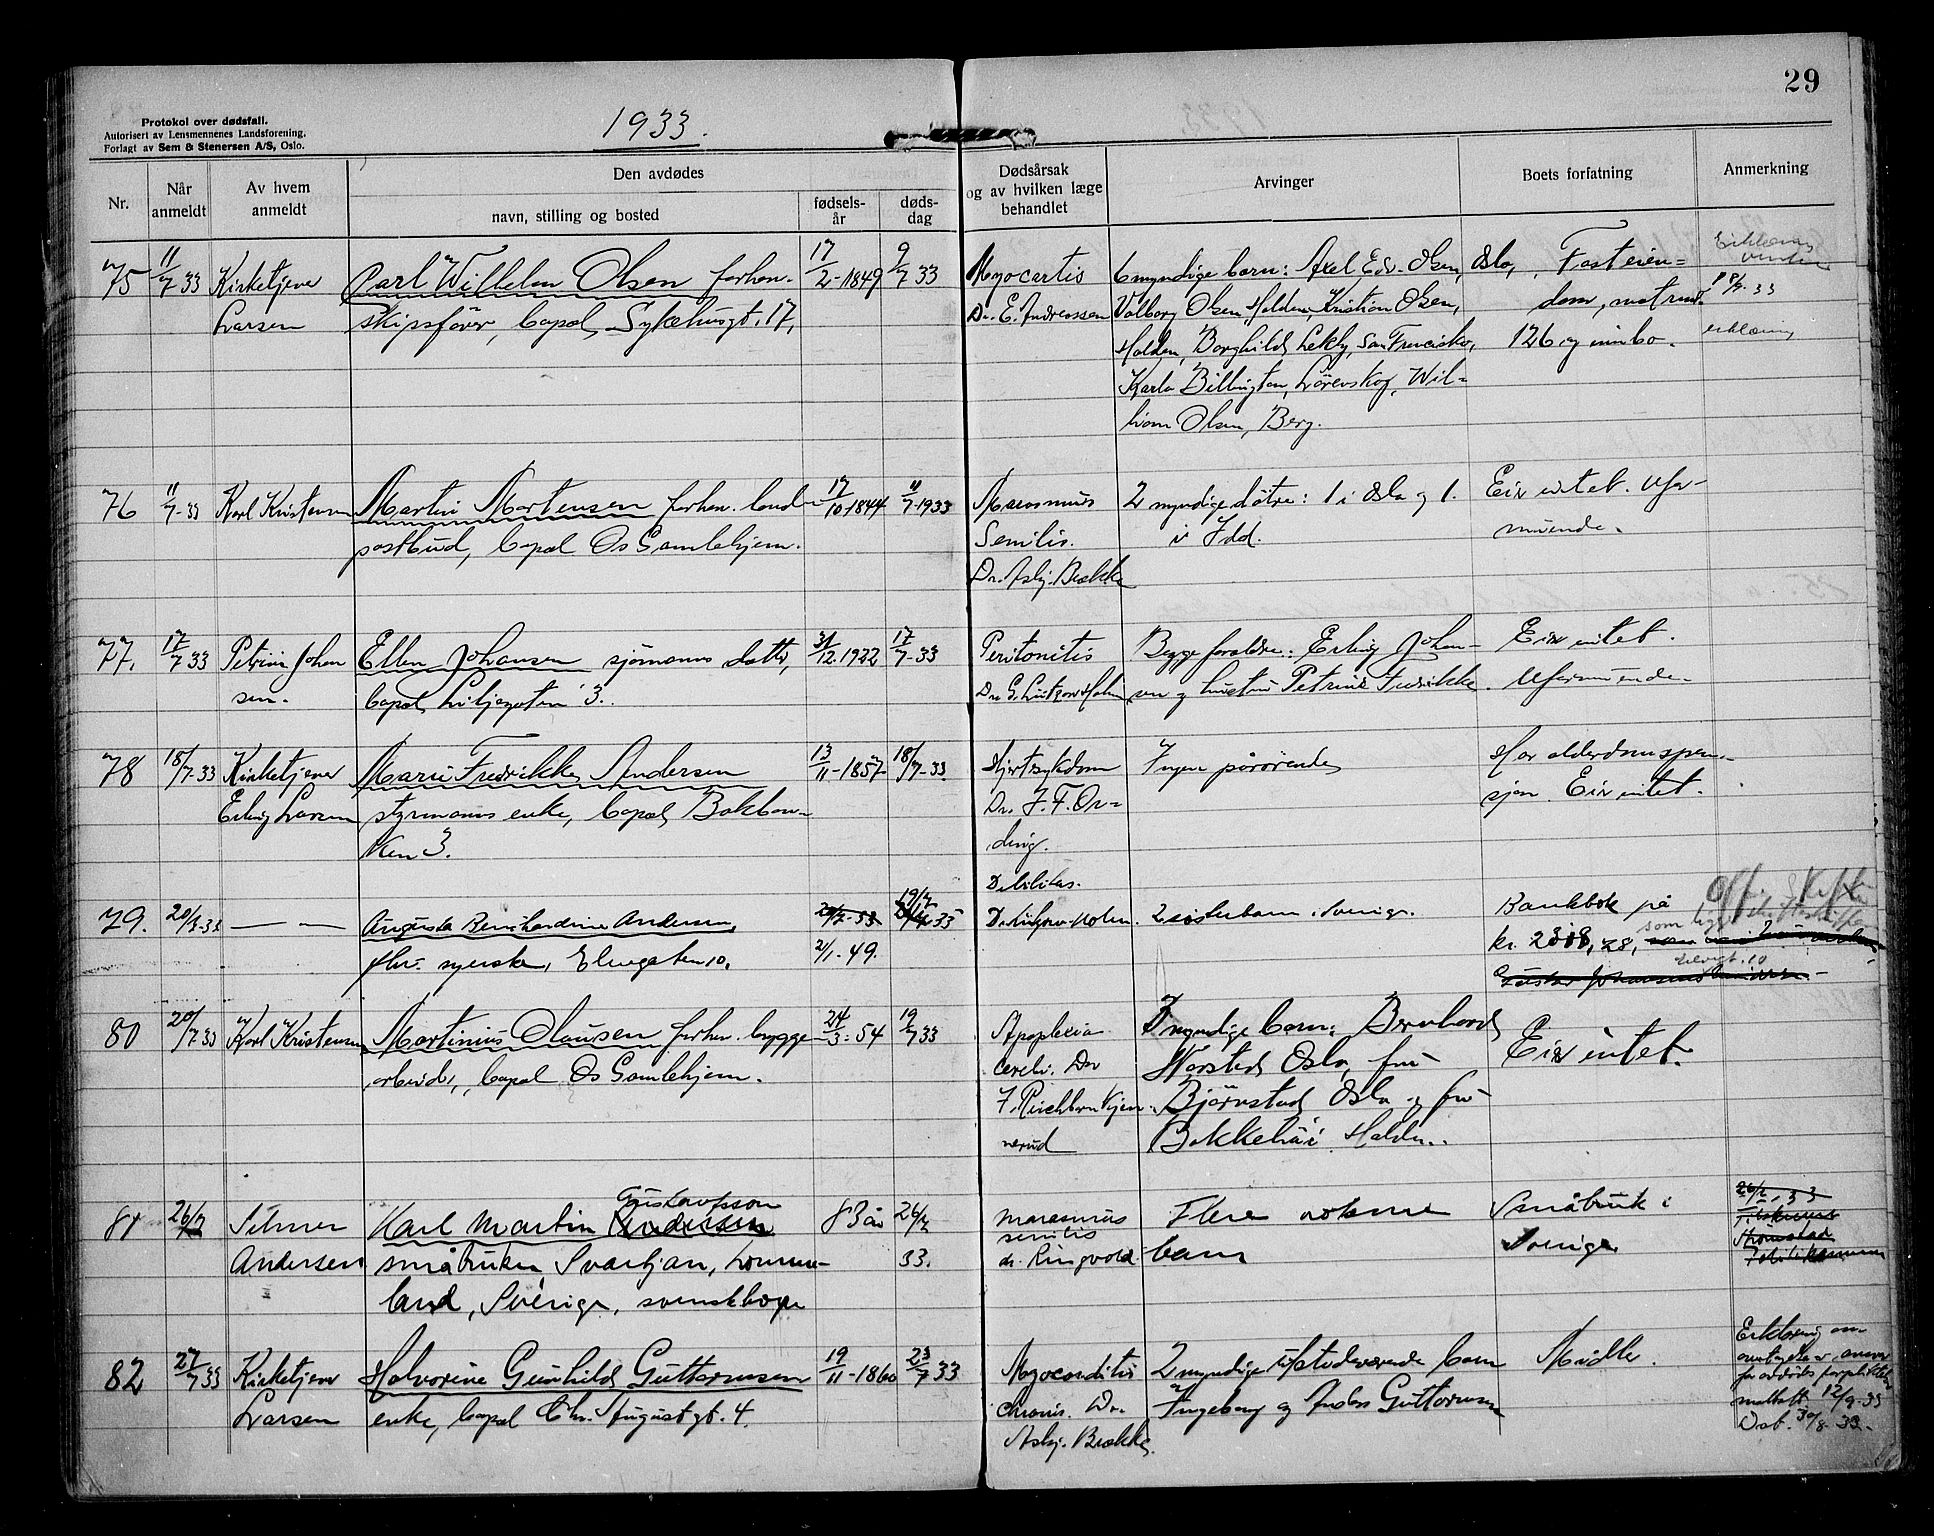 29
Protokol over dødsfall.
Autorisert av Lensmennenes Landsforening.
Forlagt av Sem & Stenersen A/S, Oslo.
1933.
Nr.
Når anmeldt
Av hvem anmeldt
Den avdødes
navn, stilling og bosted
fødsels-år
døds-dag
Dødsårsak og av hvilken læge behandlet
Arvinger
Boets forfatning
Anmerkning
75
11/7 33
Kirketjener
Larsen
Carl Wilhelm Olsen forhen.
skipsfører, bopæl, Sykehusgt. 17.
17/2-1849
9/7 33
Myocartis
Dr. E. Andreassen
6 myndige barn: Axel Edv. Olsen, Oslo,
Valborg Olsen, Halden, Kristian Olsen,
Halden, Borghild Lekly, San Francisko,
Karla Billington, Lørenskog, Wil-
liam Olsen, Berg.
Fast eien-
dom, matr.
126 og innbo.
8/9-33
erklæring
76
11/7-33
Karl Kristensen
Martin Martensen forhen. land-
postbud, bopæl Os Gamlehjem.
17/10-1844
11/7-1933
Marasmus
Senilis.
Dr. Asbj. Brække
2 myndige døtre: 1 i Oslo og 1.
i Idd.
Eier intet. Ufor-
muende.
77.
17/7 33
Petrine Johan
sen.
Ellen Johansen sjømanns datter,
bopæl, Liljegaten 3.
31/12.1922
17/7-33
Peritonitis
Dr. G. Lützow Holm
Begge foreldre: Erling Johan-
sen og hustru Petrine Fredrikke.
Eier intet.
Uformuende.
78
18/7-33
Kirketjener
Erling Larsen
Marie Fredrikke Andersen
styrmanns enke, bopæl, Bakban-
ken 3.
13/11-1857
18/7-33.
Hjertesykdom
Dr. J. F. Or-
ding.
Ingen pårørende
Har alderdomspen-
sjon. Eier intet.
79.
20/7-33
— —
Augusta Bernhardine Andersen,
fhv. syerske, Elvegaten 10.
20/7-33
2/1-49.
19/7
33
Debilitas.
Dr. Lützow-Holm.
2 søsterbarn i Sverige.
Bankbok på
kr. 2308,28,
som ligger
Elvegt. 10
80
20/7-33
Karl Kristensen
Martinius Clausen forhen. bygge-
arbeider, bopæl Os Gamlehjem.
24/3-54
19/7 33
Apoplexia
cerebr. Dr
3 myndige barn: Bernhard
Harstad Oslo, fru
Bjørnstad Oslo og fru
Bakkehøi Halden.
Eier intet.
81
26/7
Hilmer
Andersen
Karl Martin Andersen
Gustavsson
småbruker, Svartjan, Lommeland, Sverige, svensk borger
83 år
26/7
33.
marasmus
senilis
dr. Ringvold.
Flere voksne
barn
Småbruk i
Sverige
26/7.33
Strømstad
82
27/7 33
Kirketjener
Larsen
Halvorine Gunhild Guttormsen
enke, bopæl Chr. Augustgt. 4.
19/11-1860
23/7 33
Myocarditis
chronis. Dr.
Asbj. Brække.
2 myndige tilstedeværende barn
Ingeborg og Anders Guttormsen
Midler.
Erklæring om
overtagelse av ansvar
for avdødes forpliktelser
mottatt 12/9-33
Dsb. 30/8-33.